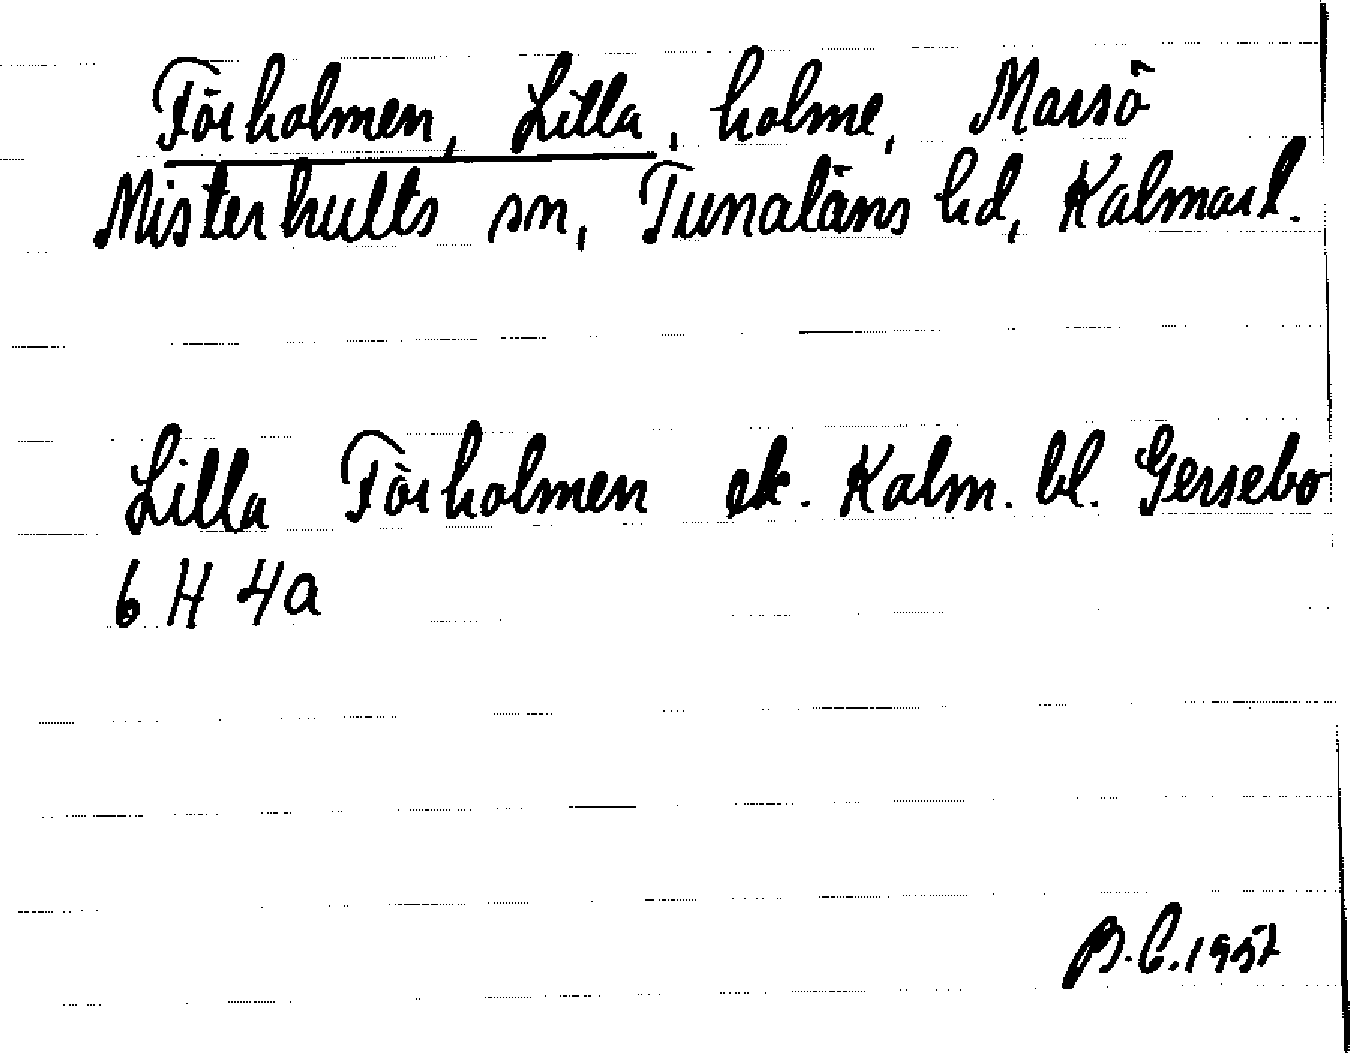 Törholmen, Lilla, holme, Marsö
Misterhults sn, Tunaläns hd, Kalmarl.
Lilla Törholmen ek. Kalm. bl. Gersebo
6 H 4a
B.C.1957